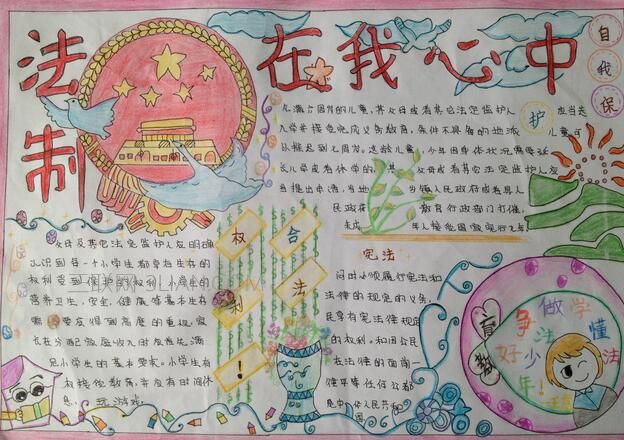 法制
在我心中
自我保护
凡满六周岁的儿童,其父母或者其它法定监护人应当送
入学并接受完成义务教育,条件不具备的地域儿童可
以推迟到七周岁。适龄儿童,少年因身体状况需要延
长入学或者休学的,其父母或者其它法定监护人应
当提出申请,当地乡镇人民政府或者县人
民政府教育行政部门
父母及其它法定监护人应明确
认识到每一个小学生都享有生存的
权利受到保护的权利,小学生的
营养卫生、安全、健康等基本生存
需要应得到高度的重视,家
长在分配家庭收入时应优先满
足小学生的基本要求。小学生有
权接受教育,并应有时间休
息、玩游戏。
权利!
合法
宪法
同时必须履行宪法和
法律的规定的义务,
民享有宪法律规定
的权利。和国公民
在法律的面前一
律平等任何公都
是中华人民共和
国
争做学法懂法好少年!